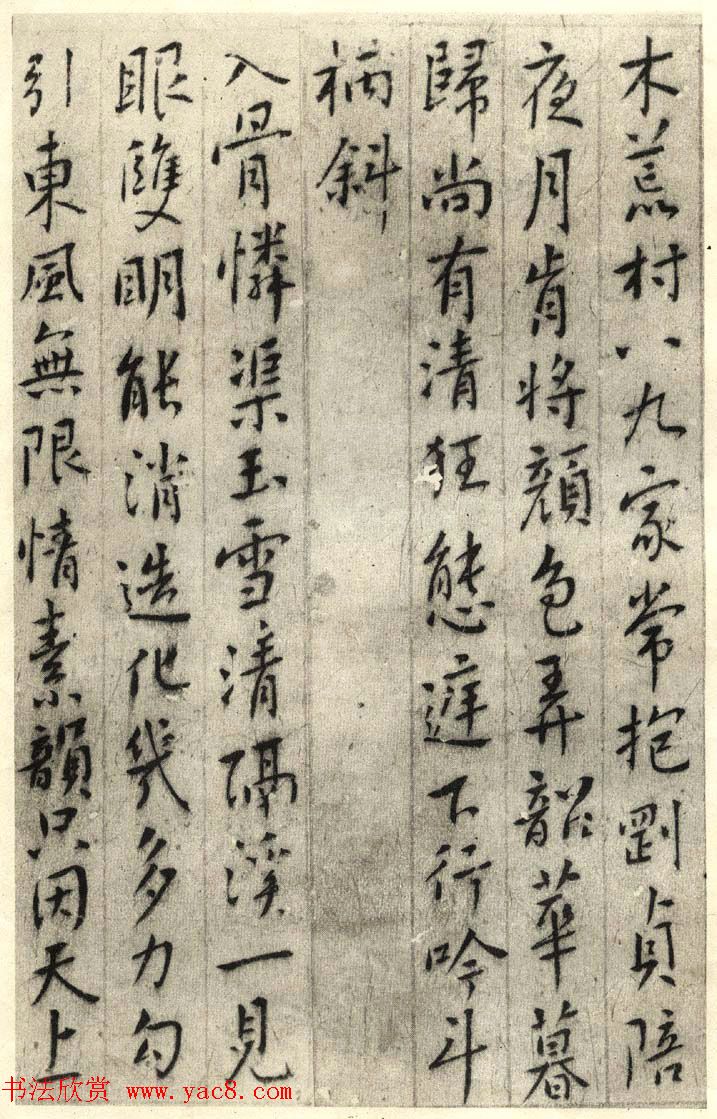 木荒村八九家常抱剛貞陪
夜月肯將顏色弄韶華暮
歸尚有清狂態遲下行吟斗
柄斜
入骨憐渠玉雪清隔溪一見
眼雙明能消造化幾多力勾
引東風無限情素韻只因天上
书法欣赏 www.yac8.com